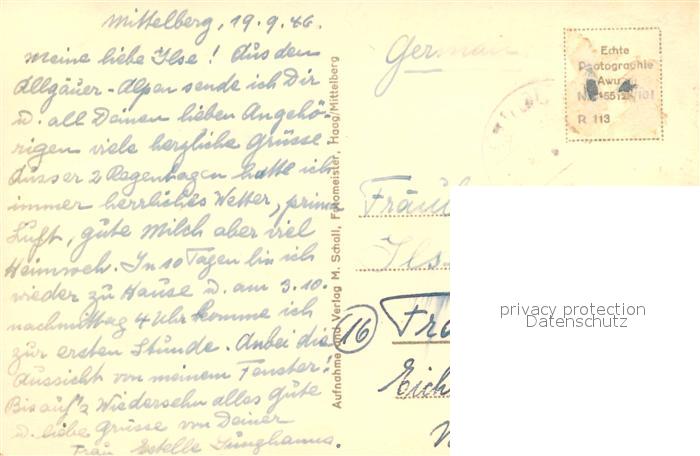 Mittelberg, 19.9.46.
Meine liebe Ilse! Aus den
Allgäuer-Alpen sende ich Dir
u. all Deinen lieben Angehö-
rigen viele herzliche Grüsse.
Ausser 2 Regentagen hatte ich
immer herrliches Wetter, prima
Luft, gute Milch aber viel
Heimweh. In 10 Tagen bin ich
wieder zu Hause u. am 3.10.
nachmittag 4 Uhr komme ich
zur ersten Stunde. Anbei die
Aussicht von meinem Fenster!
Bis auf's Wiedersehn alles Gute
u. liebe Grüsse von Deiner
Frau Estelle Junghanns.
Aufnahme und Verlag M. Schall, Fotomeister, Haag/Mittelberg
Germany
Echte
Photographie
R 113
Fräul
Ils
16
Fra
Eich
privacy protection
Datenschutz